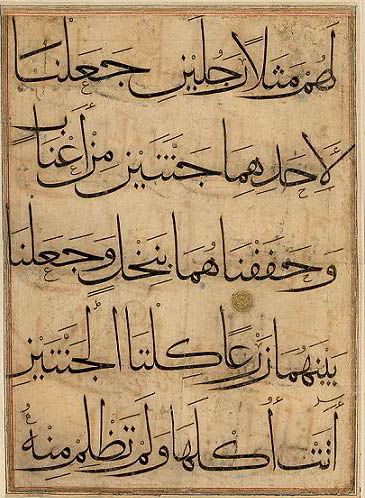 لَهُمْ مَثَلًا رَجُلَيْنِ جَعَلْنَا
لِأَحَدِهِمَا جَنَّتَيْنِ مِنْ أَعْنَابٍ
وَحَفَفْنَاهُمَا بِنَخْلٍ وَجَعَلْنَا
بَيْنَهُمَا زَرْعًا كِلْتَا الْجَنَّتَيْنِ
أٰتَتْ أُكُلَهَا وَلَمْ تَظْلِمْ مِنْهُ